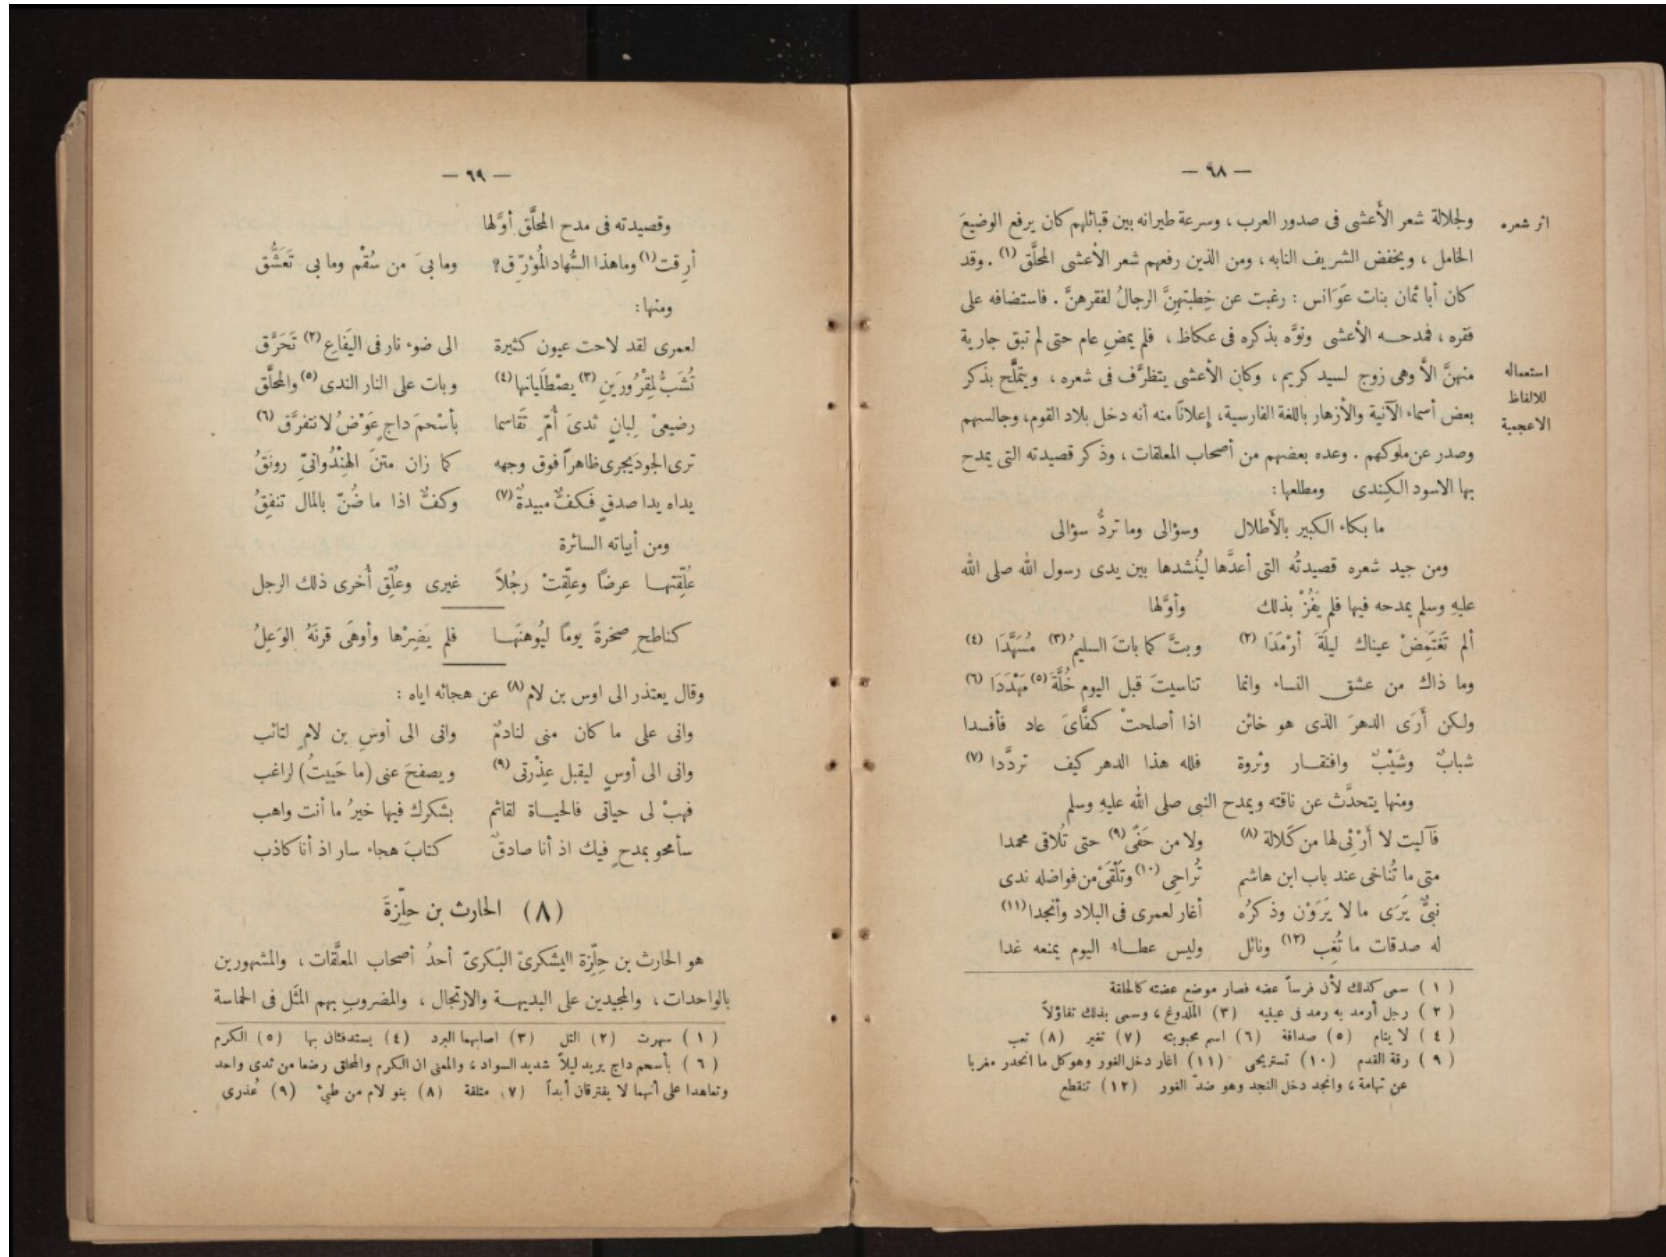 — ٦٨ —
اثر شعره
ولجلالة شعر الأَعشى فى صدور العرب ، وسرعة طيرانه بين قبائلهم كان يرفع الوضيعَ
الخامل ، ويخفض الشريف النابه ، ومن الذين رفعهم شعر الأعشى المحلَّق (١) . وقد
كان أبا ثمان بنات عَوَانس : رغبت عن خِطبتهنَّ الرجالُ لفقرهنَّ . فاستضافه على
فقره ، فمدحه الأعشى ونوَّه بذكره فى عكاظ ، فلم يمضِ عام حتى لم تبق جارية
استعماله
للالفاظ
الاعجمية
منهنَّ الأ وهى زوج لسيد كريم ، وكان الأعشى يتظرَّف فى شعره ، ويتملَّح بذكر
بعض أسماء الآنية والأزهار باللغة الفارسية ، إعلانًا منه أنه دخل بلاد القوم ، وجالسهم
وصدر عن ملوكهم . وعده بعضهم من أصحاب المعلقات ، وذكر قصيدته التى يمدح
بها الاسود الكِندى ومطلعها :
ما بكاء الكبير بالأَطلال وسؤالى وما تردُّ سؤالى
ومن جيد شعره قصيدتُه التى أعدَّها ليُنشدها بين يدى رسول الله صلى الله
عليهِ وسلم يمدحه فيها فلم يَفُزْ بذلك وأوَّلها
ألم تَغتَمِضْ عيناك ليلَةَ أرْمَدَا (٢) وبتَّ كما باتَ السليمُ (٣) مُسَهَّدَا (٤)
وما ذاك من عشق النساء وانما تناسيتَ قبل اليوم خُلَّةَ (٥) مَهْدَدَا (٦)
ولكن أرَى الدهرَ الذى هو خائن اذا أصلحتْ كفَّاىَ عاد فأفسدا
شبابٌ وشَيْبٌ وافتقار وثروة فلله هذا الدهر كيف تردَّدا (٧)
ومنها يتحدَّث عن ناقته ويمدح النبى صلى الله عليهِ وسلم
فآليت لا أَرْثِى لها من كَلالة (٨) ولا من حَفًى (٩) حتى تُلاقى محمدا
متى ما تُناخى عند باب ابن هاشم تُراحِى (١٠) وتَلْقَىْ من فواضله ندى
نبىٌّ يَرَى ما لا يَرَوْن وذكرُه أغار لعمرى فى البلاد وأنجدا (١١)
له صدقات ما تُغِب (١٢) ونائل وليس عطاء اليوم يمنعه غدا
( ١ ) سمى كذلك لأن فرساً عضه فصار موضع عضته كالحلقة
( ٢ ) رجل أرمد به رمد فى عينيه (٣) الملدوغ ، وسمى بذلك تفاؤلاً
( ٤ ) لا ينام (٥) صداقة (٦) اسم محبوبته (٧) تغير (٨) تعب
( ٩ ) رقة القدم (١٠) تستريحى (١١) اغار دخل الغور وهو كل ما انحدر مغربا
عن تهامة ، وانجد دخل النجد وهو ضدّ الغور (١٢) تنقطع
— ٦٩ —
وقصيدته فى مدح المحلَّق أوَّلها
أرِقت (١) وماهذا السُّهاد المُؤرِّق؟ وما بىَ من سُقْم وما بى تَعَشُّق
ومنها :
لعمرى لقد لاحت عيون كثيرة الى ضوء نار فى اليَفاعِ (٢) تَحَرَّق
تُشَبُّ لِمَقْرُورَينِ (٣) يصْطَلَيانها (٤) وبات على النار الندى (٥) والمحلَّق
رضيعىْ لِبانٍ ثدىَ أُمّ تَقاسما بأسْحمَ داجٍ عَوْضُ لانتفرَّق (٦)
ترى الجودَ يجرى ظاهراً فوق وجهه كما زان متنَ الهِنْدُوانىّ رونقُ
يداه يدا صدقٍ فكفٌّ مبيدةٌ (٧) وكفٌّ اذا ما ضُنّ بالمال تنفِقُ
ومن أبياته السائرة
عُلِّقتها عرضًا وعلِّقتْ رجُلاً غيرى وعُلِّق أُخرى ذلك الرجل
كناطحٍ صخرةً يومًا ليُوهنَها فلم يَضِرْها وأوهَى قرنَهُ الوَعِلُ
وقال يعتذر الى اوس بن لام (٨) عن هجائه اياه :
وانى على ما كان منى لنادمٌ وانى الى أوسِ بن لامٍ لتائب
وانى الى أوسٍ ليقبل عِذْرتى (٩) ويصفحَ عنى (ما حَييتُ) لراغب
فهبْ لى حياتى فالحياة لقائم بشكرك فيها خيرُ ما أنت واهب
سأمحو بمدحٍ فيك اذ أنا صادقٌ كتابَ هجاء سار اذ أنا كاذب
(٨) الحارث بن حلِّزةَ
هو الحارث بن حِلِّزة اليشكرىّ البَكرىّ أحدُ أصحاب المعلَّقات ، والمشهورين
بالواحدات ، والمجيدين على البديهة والارتجال ، والمضروبِ بهم المثَل فى الحماسة
( ١ ) سهرت (٢) التل (٣) اصابهما البرد (٤) يستدفئان بها (٥) الكرم
( ٦ ) بأسحم داج يريد ليلاً شديد السواد ، والمعنى ان الكرم والمحلق رضعا من ثدى واحد
وتعاهدا على أنهما لا يفترقان أبداً (٧) متلفة (٨) بنو لام من طيء (٩) عُذرى